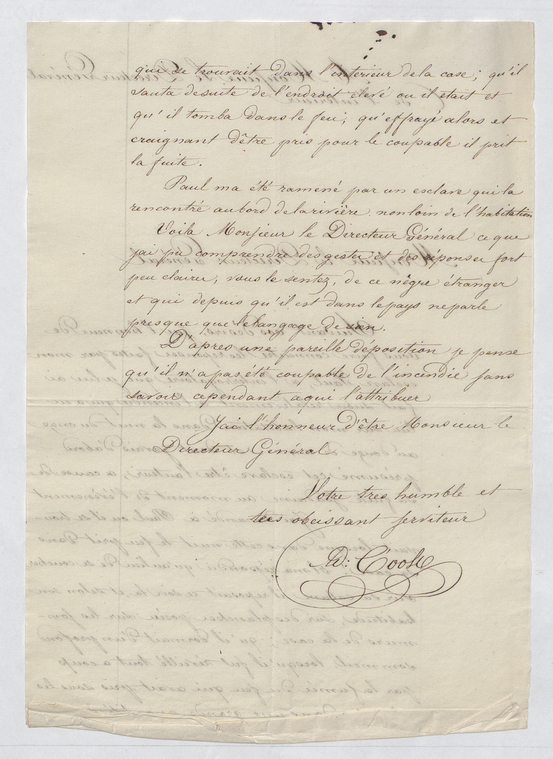 qui se trouvait dans l'interieur de la case; qu'il
sauta desuite de l'endroit elevé ou il était et
qu'il tomba dans le feu; qu'effrayé alors et
craignant d'être pris pour le coupable il prit
la fuite.
Paul m'a été ramené par un esclave qui l'a
rencontré au bord de la rivière, non loin de l'habitation
Voila Monsieur le Directeur Général ce que
j'ai pu comprendre des gestes et des réponses fort
peu claires, vous le sentez, de ce nègre étranger
et qui depuis qu'il est dans le pays ne parle
presque que le langage de sien.
D'après une pareille déposition je pense
qu'il n'a pas été coupable de l'incendie sans
savoir cependant a qui l'attribuer
J'ai l'honneur d'être Monsieur le
Directeur Général
Votre tres humble et
tres obeissant serviteur
Ad: Cook